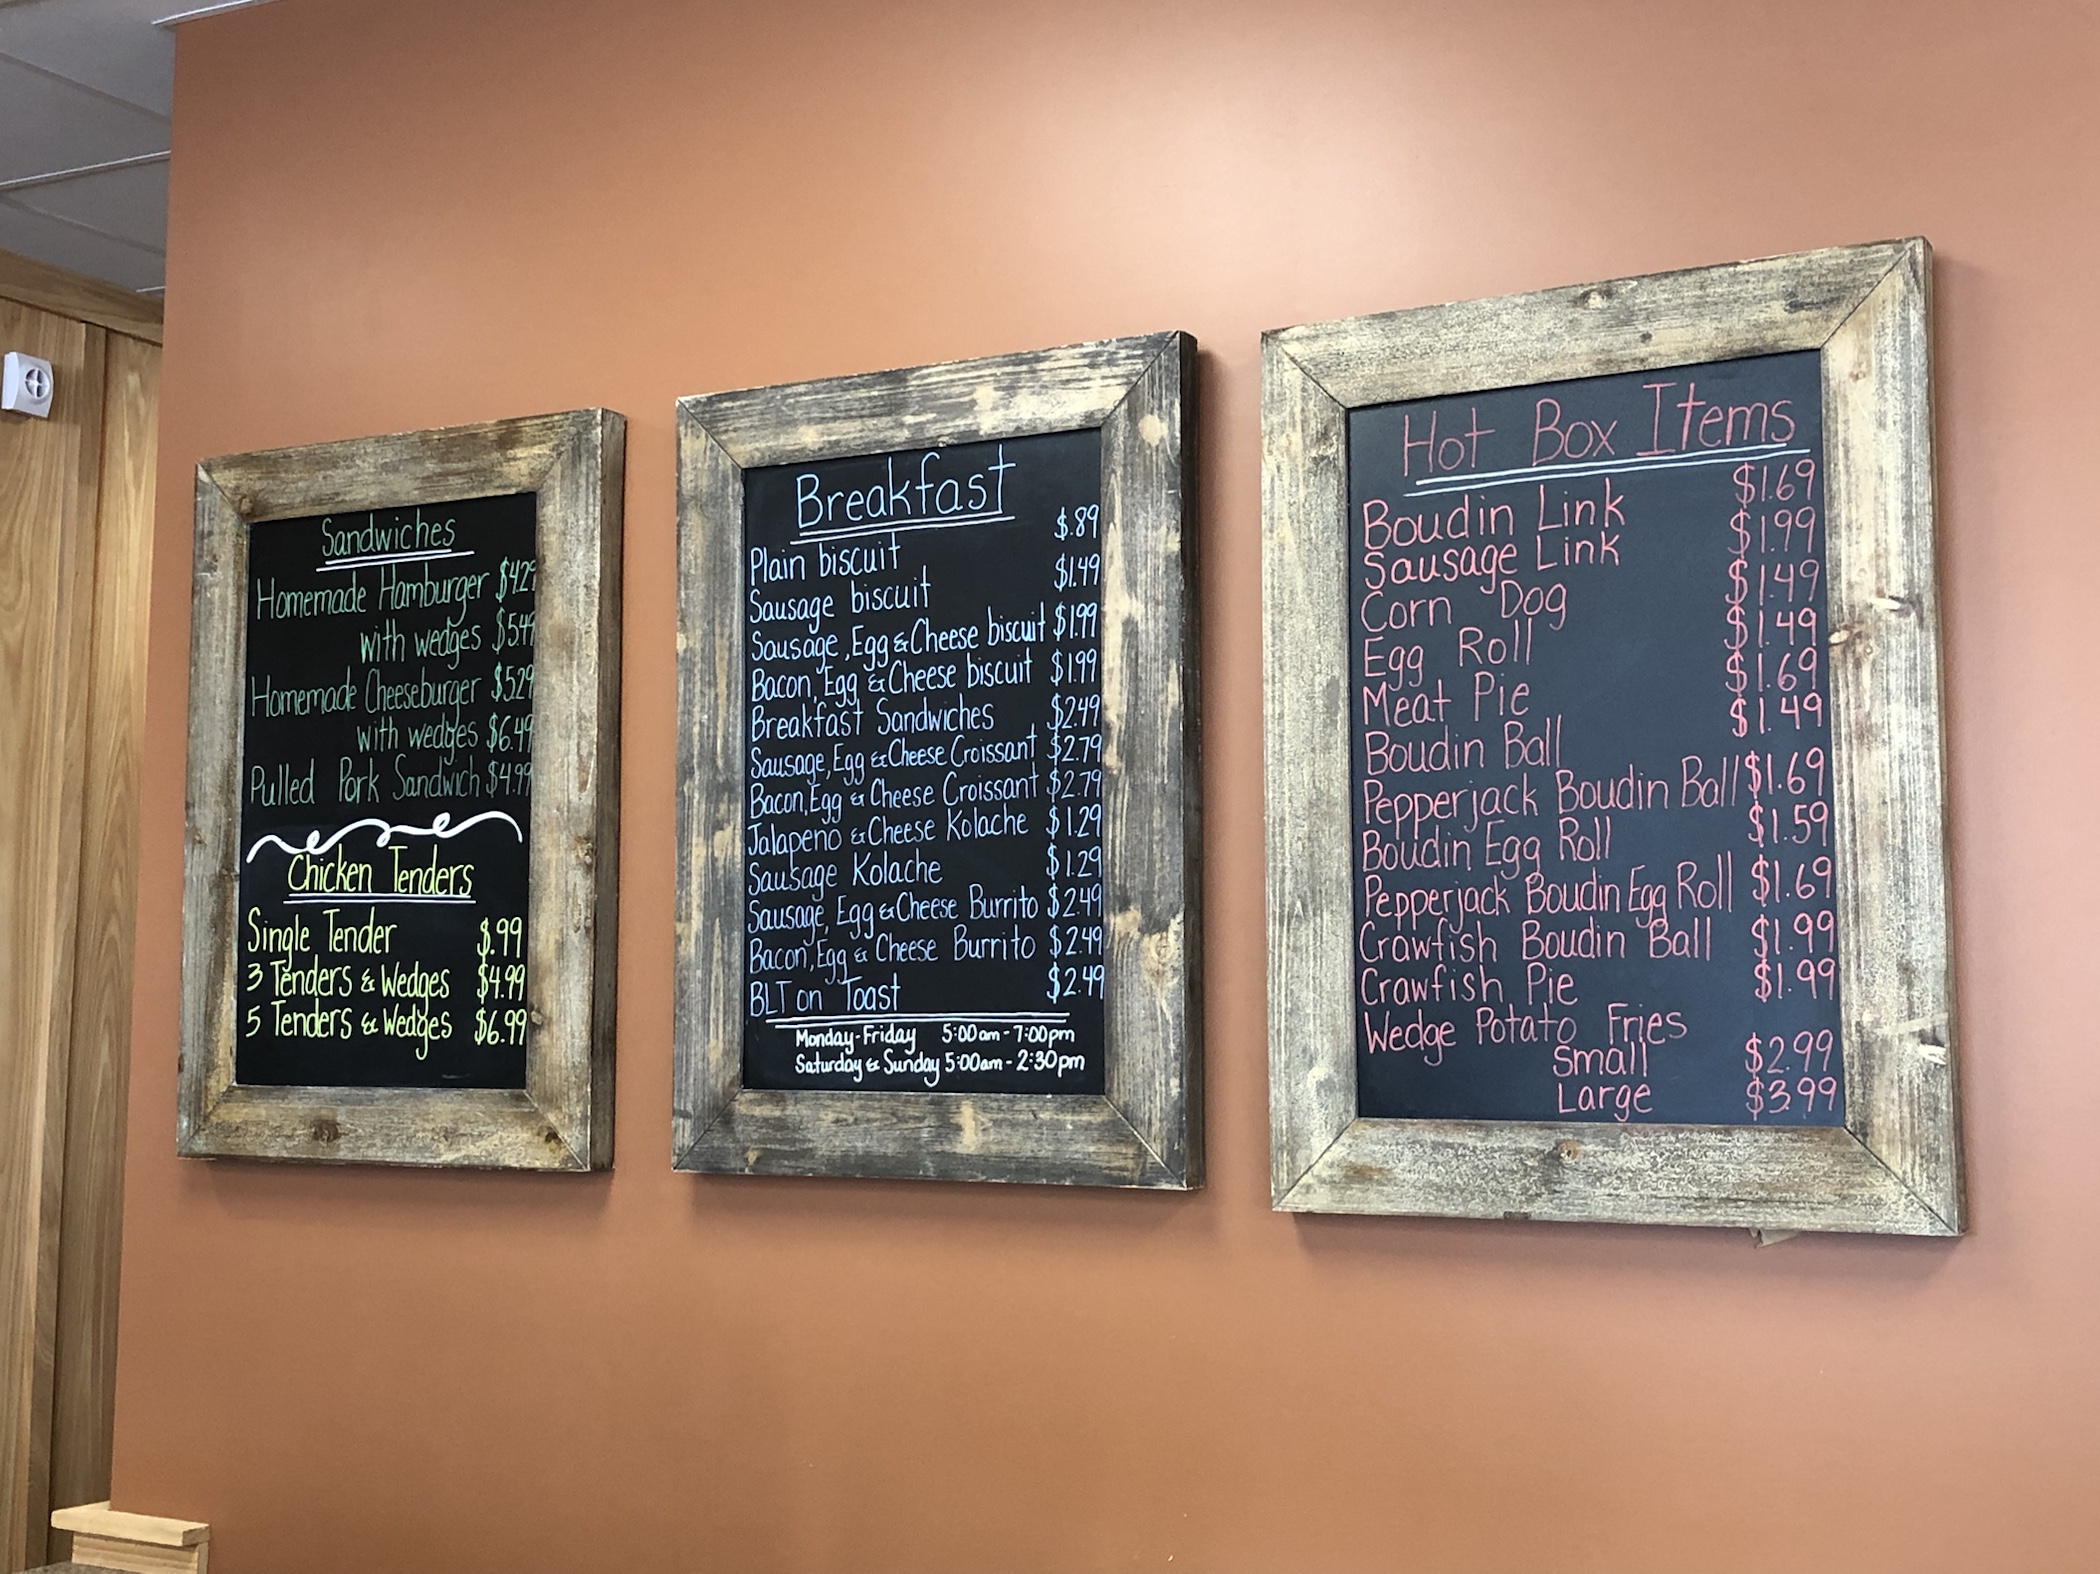 Sandwiches
Homemade Hamburger $4.29
with wedges $5.49
Homemade Cheeseburger $5.29
with wedges $6.49
Pulled Pork Sandwich $4.99
Chicken Tenders
Single Tender $.99
3 Tenders & Wedges $4.99
5 Tenders & Wedges $6.99
Breakfast
Plain biscuit $.89
Sausage biscuit $1.49
Sausage, Egg & Cheese biscuit $1.99
Bacon, Egg & Cheese biscuit $1.99
Breakfast Sandwiches $2.49
Sausage, Egg & Cheese Croissant $2.79
Bacon, Egg & Cheese Croissant $2.79
Jalapeno & Cheese Kolache $1.29
Sausage Kolache $1.29
Sausage, Egg & Cheese Burrito $2.49
Bacon, Egg & Cheese Burrito $2.49
BLT on Toast $2.49
Monday-Friday 5:00am-7:00pm
Saturday & Sunday 5:00am-2:30pm
Hot Box Items
Boudin Link $1.69
Sausage Link $1.99
Corn Dog $1.49
Egg Roll $1.49
Meat Pie $1.69
Boudin Ball $1.49
Pepperjack Boudin Ball $1.69
Boudin Egg Roll $1.59
Pepperjack Boudin Egg Roll $1.69
Crawfish Boudin Ball $1.99
Crawfish Pie $1.99
Wedge Potato Fries
Small $2.99
Large $3.99